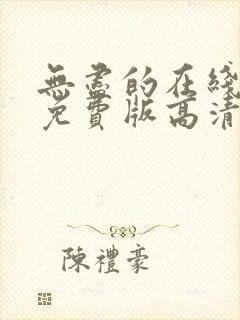 無盡的在綫
免費版高清
陳禮豪